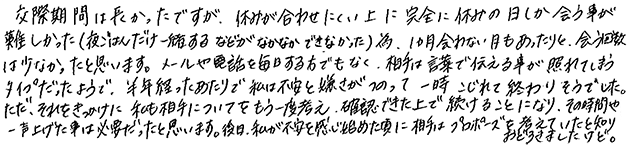 交際期間は長かったですが、休みが合わせにくい上に完全に休みの日しか会う事が
難しかった(夜ごはんだけ一緒するなどがなかなかできなかった)為、1ヶ月会わない月もあったりと、会う回数
は少なかったと思います。メールや電話を毎日する方でもなく、相手は言葉で伝える事が照れてしまう
タイプだったようで、半年経ったあたりで私は不安と嫌さがつのって一時こじれて終わりそうでした。
ただ、それをきっかけに私も相手についてをもう一度考え、確認できた上で続けることになり、その時間や
一声上げた事は必要だったと思います。後日、私が不安を感じ始めた頃に相手はプロポーズを考えていたと知り
おどろきましたけど。